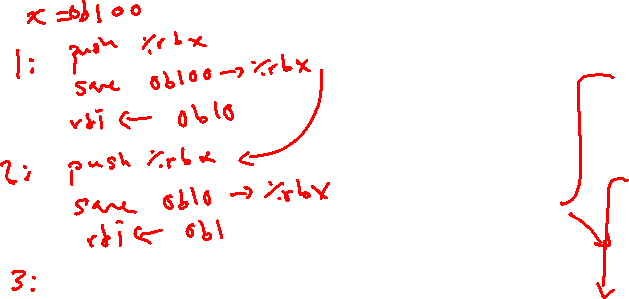 x = 0b100
1: push %rbx
save 0b100 → %rbx
rdi ← 0b10
2: push %rbx
save 0b10 → %rbx
rdi ← 0b1
3: